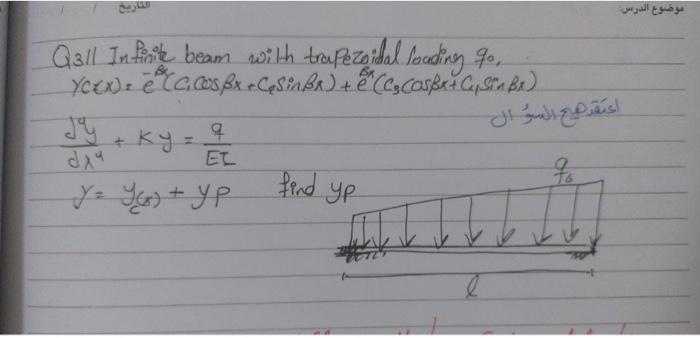 موضوع الدرس:
التاريخ / /
Q3|| Infinite beam with trapezoidal loading q₀,
Yc(x) = e^-βx (C₁cosβx + C₂sinβx) + e^βx (C₃cosβx + C₄sinβx)
اعتقد هيج السؤال
d⁴y/dx⁴ + Ky = q/EI
y = yc(x) + yp find yp
q₀
l